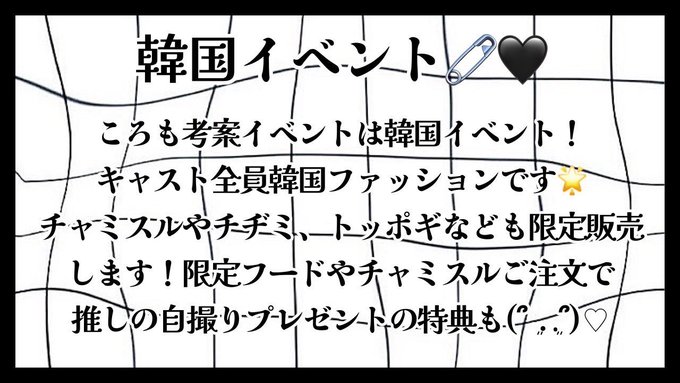 韓国イベント🧷🖤
ころも考案イベントは韓国イベント！
キャスト全員韓国ファッションです🌟
チャミスルやチヂミ、トッポギなども限定販売
します！限定フードやチャミスルご注文で
推しの自撮りプレゼントの特典も(՞ ܸ. .ܸ՞)♡